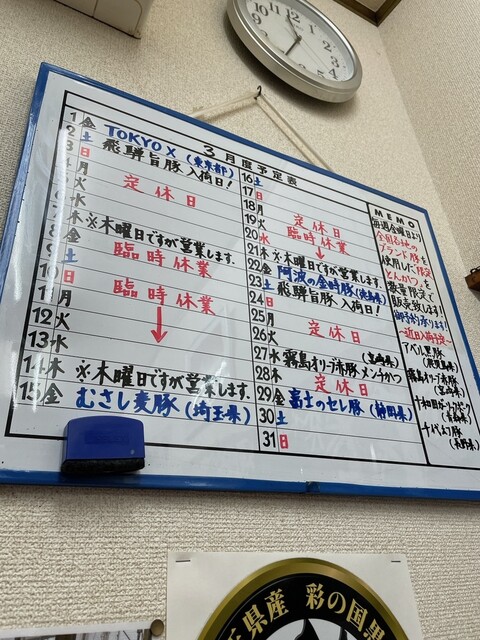 3月度予定表
1 金 TOKYO X (東京都)
2 土 飛騨旨豚 入荷日!
3 日
4 月
5 火 定休日
6 水
7 木 ※木曜日ですが営業します.
8 金 臨時休業
9 土
10 日 臨時休業
11 月
12 火
13 水
14 木 ※木曜日ですが営業します.
15 金 むさし麦豚 (埼玉県)
16 土
17 日
18 月
19 火 定休日
20 水 臨時休業
21 木 ※木曜日ですが営業します.
22 金 阿波の金時豚(徳島県)
23 土 飛騨旨豚 入荷日!
24 日
25 月
26 火 定休日
27 水 霧島オリーブ赤豚 メンチかつ (宮崎県)
28 木 定休日
29 金 富士のセレ豚 (静岡県)
30 土
31 日
MEMO
毎週金曜日より
全国各地の
ブランド豚を
使用した「限定
とんかつ」を
数量限定で
販売致します!
御予約承ります!
~近日入荷予定~
アベル黒豚
(鹿児島県)
霧島オリーブ赤豚
(宮崎県)
十和田ガーリックポーク
(青森県)
千代ふく豚
(長野県)
県産 彩の国黒